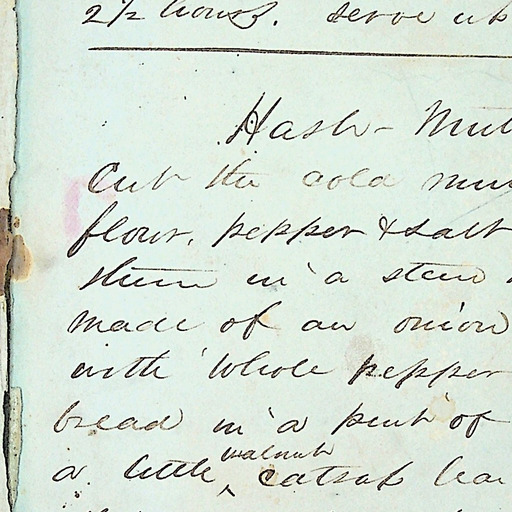 2 1/2 hours. Serve up
Hash - Mut
Cut the cold mu
flour, pepper & salt
them in a stew
made of an onion
with whole pepper
bread in a pint of
a little walnut catsup